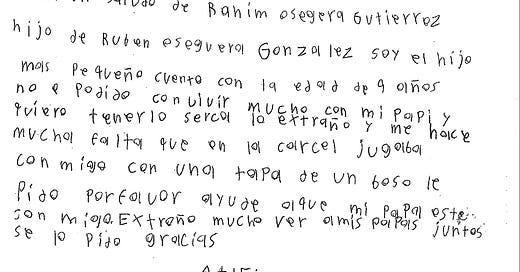 un saludo de Ranim osegera Gutierrez
hijo de Ruben oseguera Gonzalez soy el hijo
mas pequeño cuento con la edad de 9 años
no e podido convivir mucho con mi papi y
quiero tenerlo serca lo extraño y me hace
mucha falta que en la carcel jugaba
conmigo con una tapa de un boso le
Pido porfavor ayude aque mi papa este
conmigo. Extraño mucho ver amis papas juntos
se lo Pido gracias